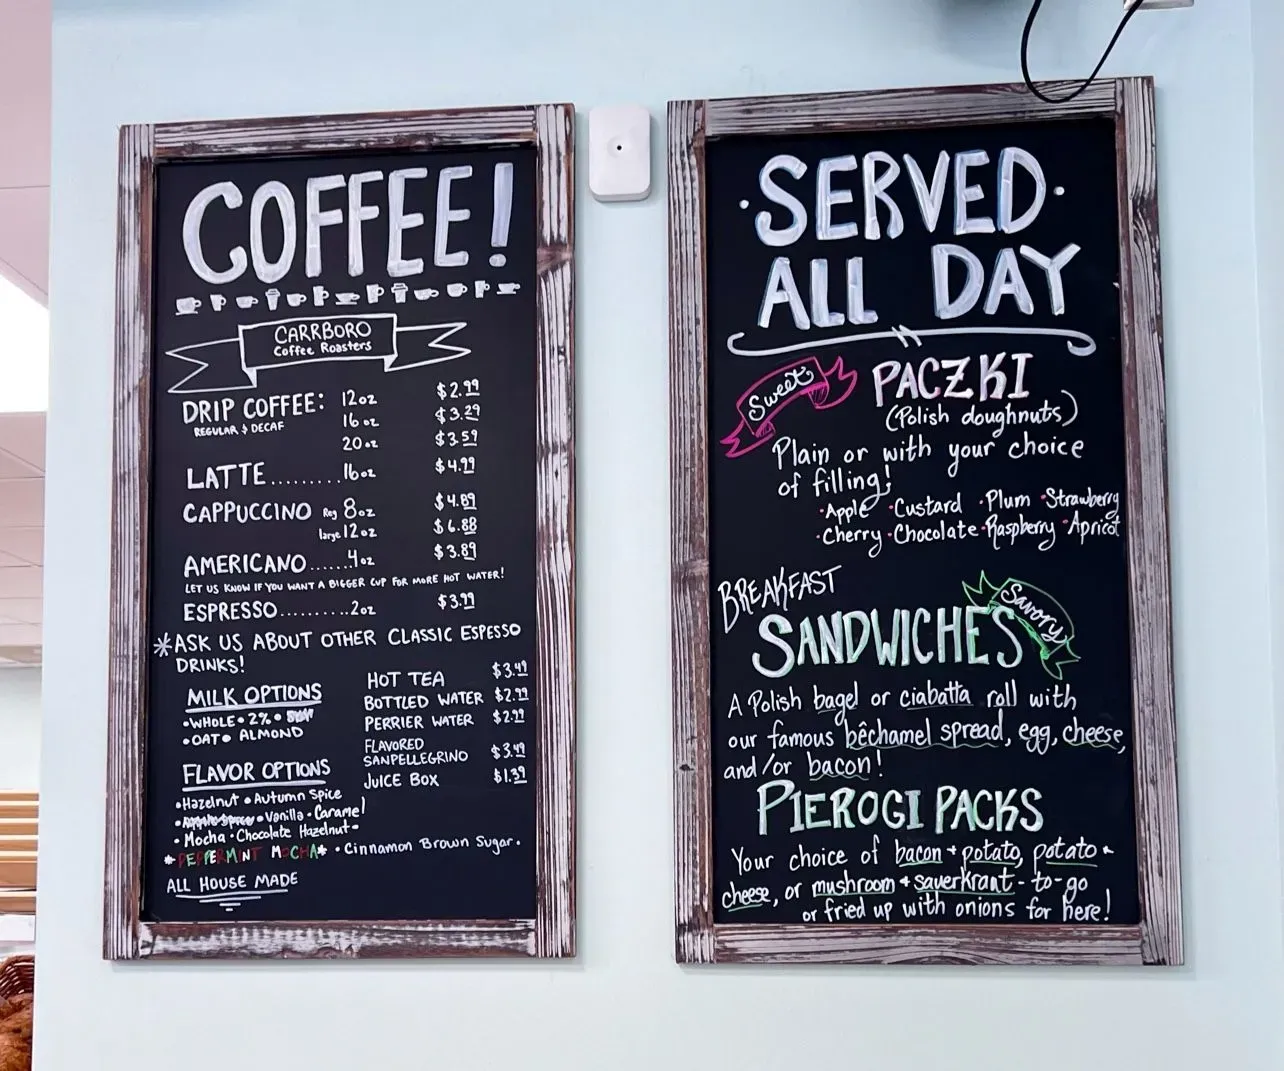 COFFEE!
CARRBORO
Coffee Roasters
DRIP COFFEE: 12oz $2.99
REGULAR & DECAF
16 oz $3.29
20oz $3.59
LATTE.........16oz $4.99
CAPPUCCINO Reg 8oz $4.89
large 12oz $6.88
AMERICANO......4oz $3.89
LET US KNOW IF YOU WANT A BIGGER CUP FOR MORE HOT WATER!
ESPRESSO.........2oz $3.99
*ASK US ABOUT OTHER CLASSIC ESPESSO
DRINKS!
MILK OPTIONS
•WHOLE • 2% •
•OAT• ALMOND
FLAVOR OPTIONS
•Hazelnut •Autumn Spice
• •Vanilla •Caramel
•Mocha •Chocolate Hazelnut•
*PEPPERMINT MOCHA* •Cinnamon Brown Sugar.
ALL HOUSE MADE
HOT TEA $3.49
BOTTLED WATER $2.99
PERRIER WATER $2.99
FLAVORED
SANPELLEGRINO $3.49
JUICE BOX $1.39
•SERVED•
ALL DAY
Sweet
PACZKI
(Polish doughnuts)
Plain or with your choice
of filling!
•Apple •Custard •Plum •Strawberry
•Cherry •Chocolate •Raspberry •Apricot
BREAKFAST
SANDWICHES
Savory
A Polish bagel or ciabatta roll with
our famous bêchamel spread, egg, cheese,
and/or bacon!
PIEROGI PACKS
Your choice of bacon + potato, potato +
cheese, or mushroom + sauerkraut - to-go
or fried up with onions for here!